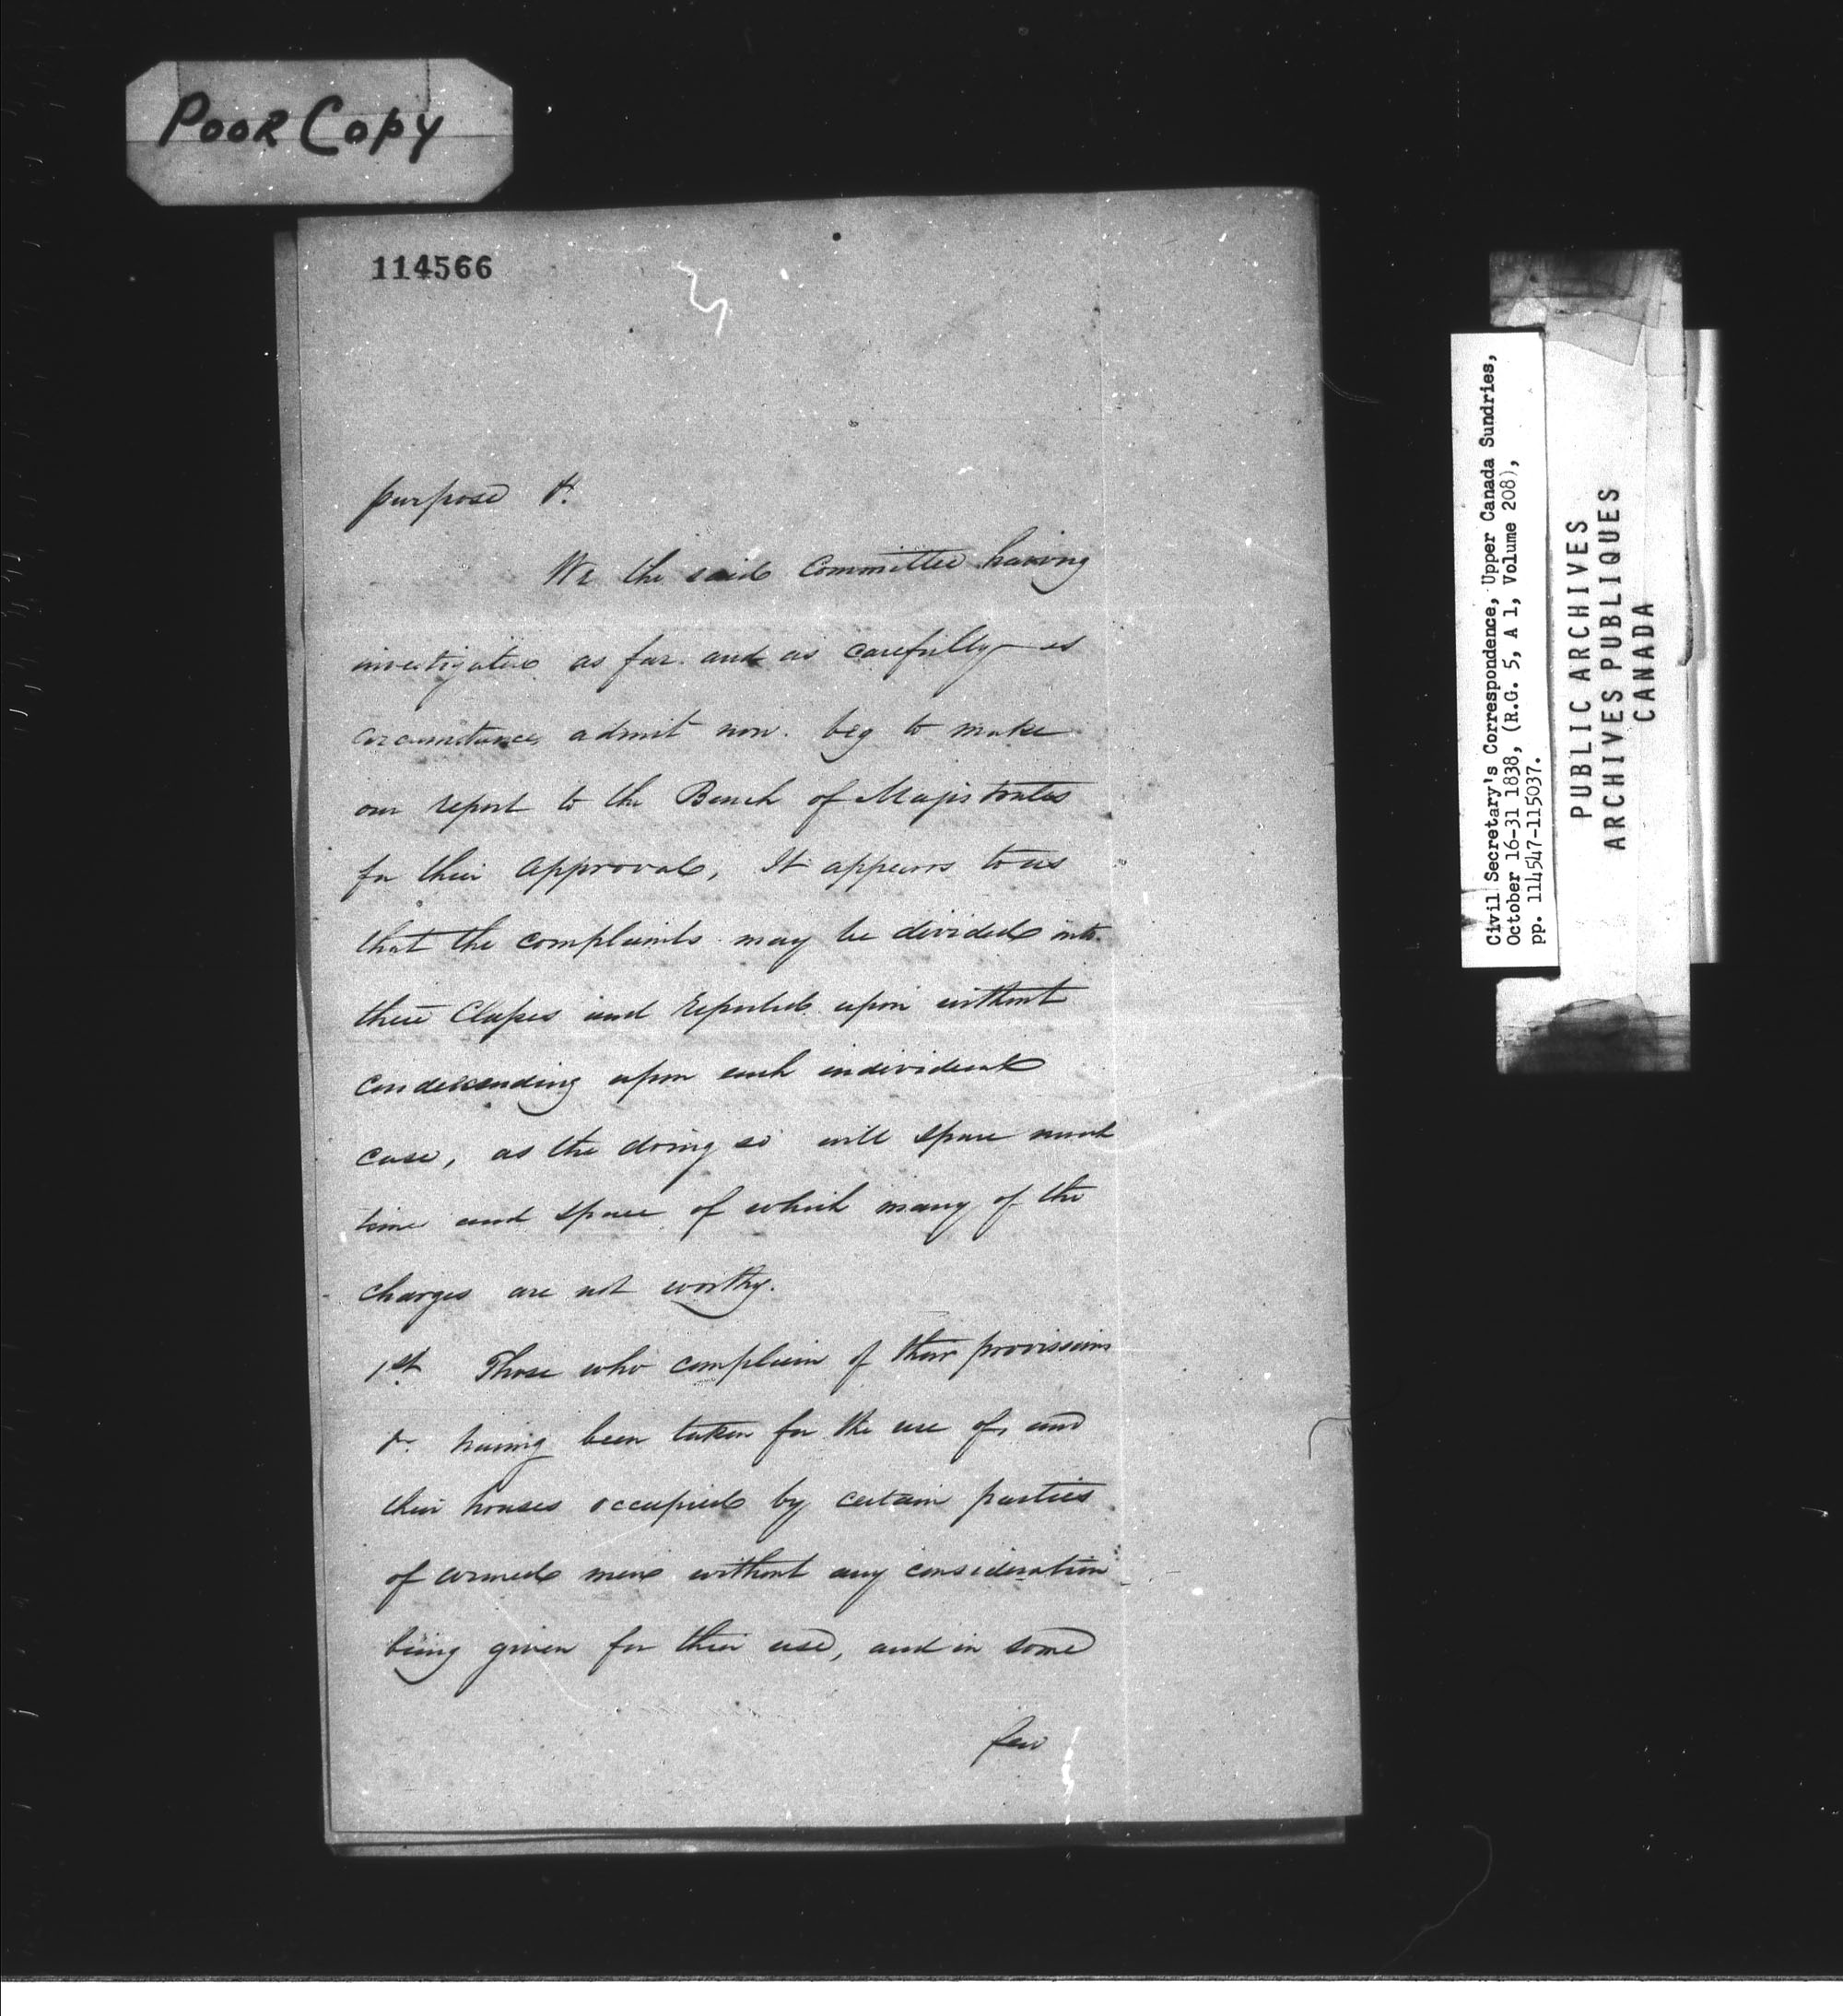 Poor Copy
114566
purpose &c.
We the said Committee having
investigated as far and as carefully as
circumstances admit now beg to make
our report to the Bench of Magistrates
for their approval, It appears to us
that the complaints may be divided into
three Classes and reported upon without
condescending upon each individual
case, as the doing so will spare much
time and space of which many of the
charges are not worthy.
1st Those who complain of their provisions
&c. having been taken for the use of, and
their houses occupied by certain parties
of armed men without any consideration
being given for their use, and in some
few
Civil Secretary's Correspondence, Upper Canada Sundries,
October 16-31 1838, (R.G. 5, A 1, Volume 208),
pp. 114547-115037.
PUBLIC ARCHIVES
ARCHIVES PUBLIQUES
CANADA